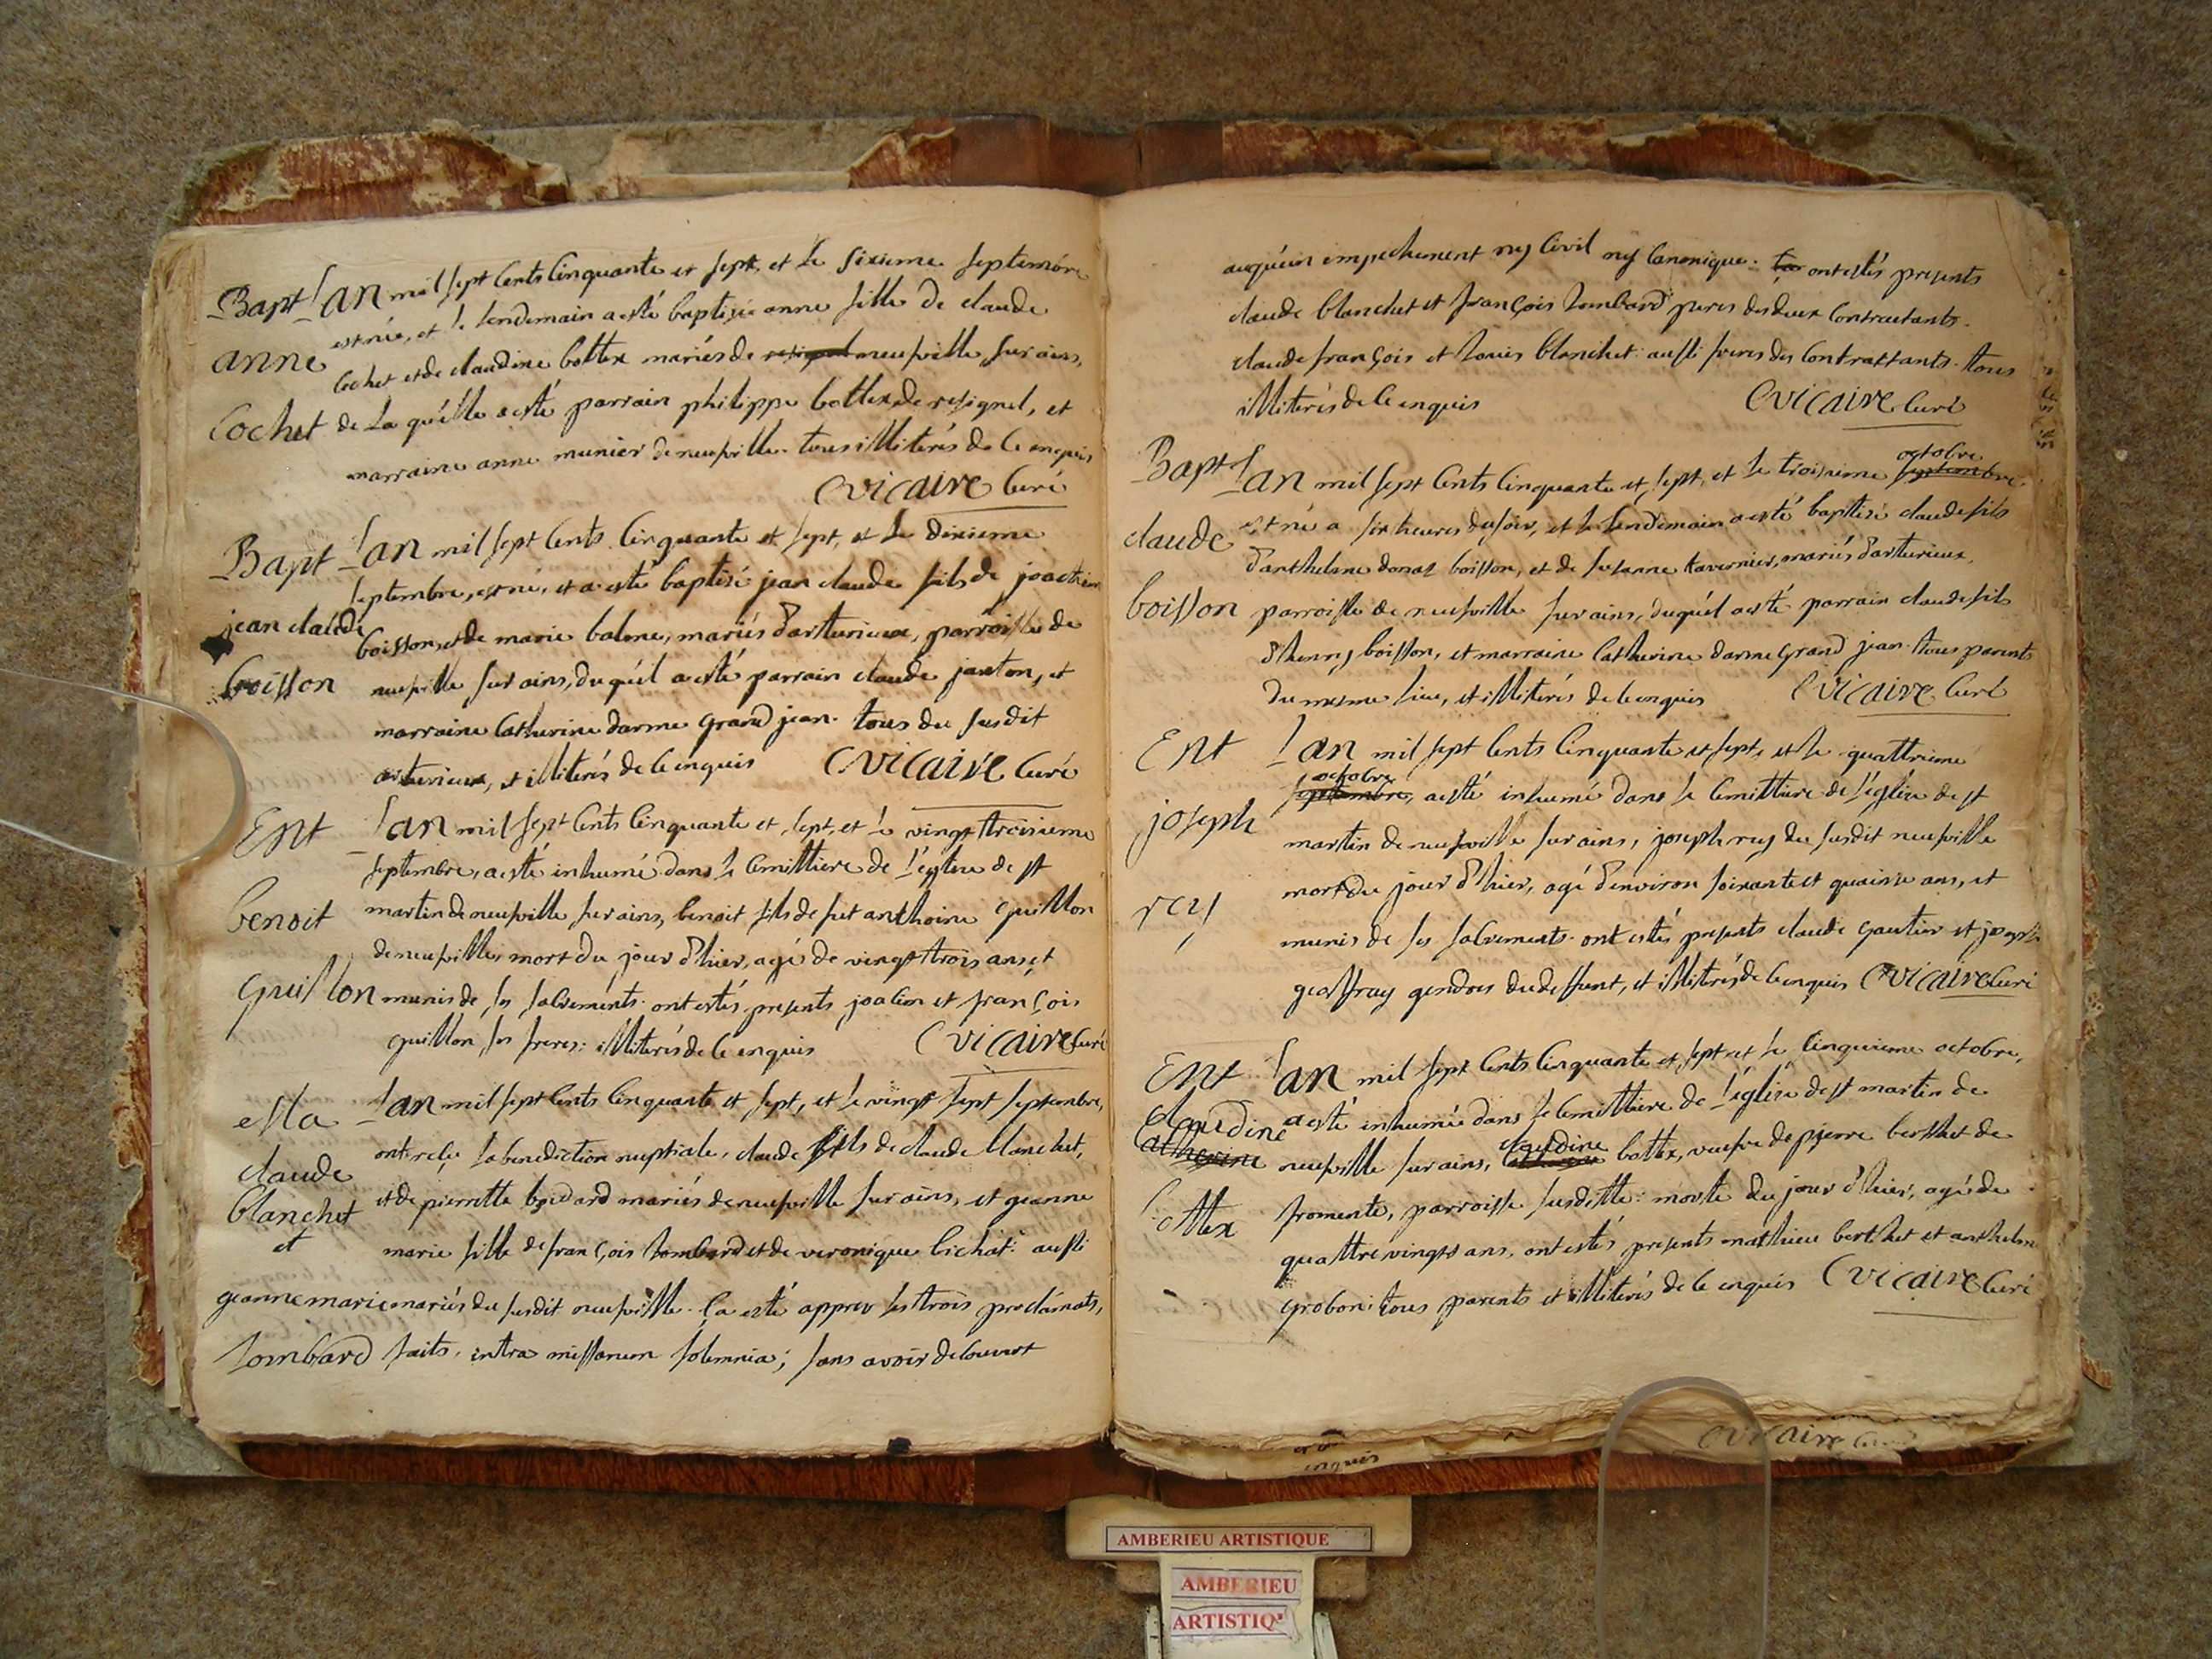 Bapt L'an mil sept cents cinquante et sept, et le sixieme septembre
est née, et le lendemain a esté baptisée anne fille de claude
anne
cochet et de claudine bottex mariés de resignel neufville sur ains,
cochet de la quélle a esté parrain philippe bottex de resignel, et
marraine anne munier de neufville. tous illiterés de ce enquis
C vicaire curé
Bapt L'an mil sept cents cinquante et sept, et le dixieme
septembre, est né, et a esté baptisé jean claude fils de joachim
jean claude
boisson, et de marie balme, mariés d'arturieux, parroisse de
boisson neufville sur ains, duquél a esté parrain claude janton, et
marraine catherine darme grand jean. tous du susdit
arturieux, et illiterés de ce enquis C vicaire curé
Ent L'an mil sept cents cinquante et sept, et le vingt troisieme
septembre, a esté inhumé dans le cemittiere de l'église de st
benoit martin de neufville sur ains, benoit fils de fut anthoine guillon
de neufville, mort du jour d'hier, agé de vingt trois ans, et
guillon munis de ses sacrements. ont estés presents joachim et françois
guillon ses freres: illiterés de ce enquis C vicaire curé
esta L'an mil sept cents cinquante et sept, et le vingt sept septembre,
ont reçu la benediction nuptiale, claude fils de claude blanchet,
claude
blanchet et de pierrette bodard mariés de neufville sur ains, et geanne
et
marie fille de françois lombard et de veronique bichat: aussi
geanne marie mariés du susdit neufville. ça esté apprev les trois proclamats,
lombard faits, intra missarum solemnia; sans avoir decouvert
auquéun empechement ny civil ny canonique. ont estés presents
claude blanchet et françois lombard peres des deux contractants.
claude françois et louis blanchet aussi freres des contrattants. tous
illiterés de ce enquis C vicaire curé
octobre
Bapt L'an mil sept cents cinquante et sept, et le troisieme septembre
est né a six heures du soir, et le lendemain a esté baptisé claude fils
claude
d'anthelme donat boisson, et de susanne tavernier, mariés d'arturieux,
boisson parroisse de neufville sur ains, duquél a esté parrain claude fils
d'henry boisson, et marraine catherine darme grand jean. tous parents
du mesme lieu, et illiterés de ce enquis C vicaire curé
Ent L'an mil sept cents cinquante et sept, et le quattrieme
octobre
septembre, a esté inhumé dans le cemittiere de l'église de st
joseph martin de neufville sur ains, joseph rey du susdit neufville
mort du jour d'hier, agé d'environ soixante et quainse ans, et
rey
munis de ses sacrements. ont estés presents claude gautier et joseph
geoffray gendres du deffunt, et illiterés de ce enquis C vicaire curé
Ent L'an mil sept cents cinquante et sept et le cinquieme octobre,
claudine a esté inhumée dans le cemittiere de l'église de st martin de
claudine
catherine neufville sur ains, catherine bottex, veufve de pierre berthet de
bottex fromente, parroisse susditte: morte du jour d'hier, agé de
quattre vingts ans, ont estés presents mathieu berthet et anthelme
groboni tous parents et illiterés de ce enquis C vicaire curé
enquis
C vicaire
AMBERIEU ARTISTIQUE
AMBERIEU
ARTISTIQ